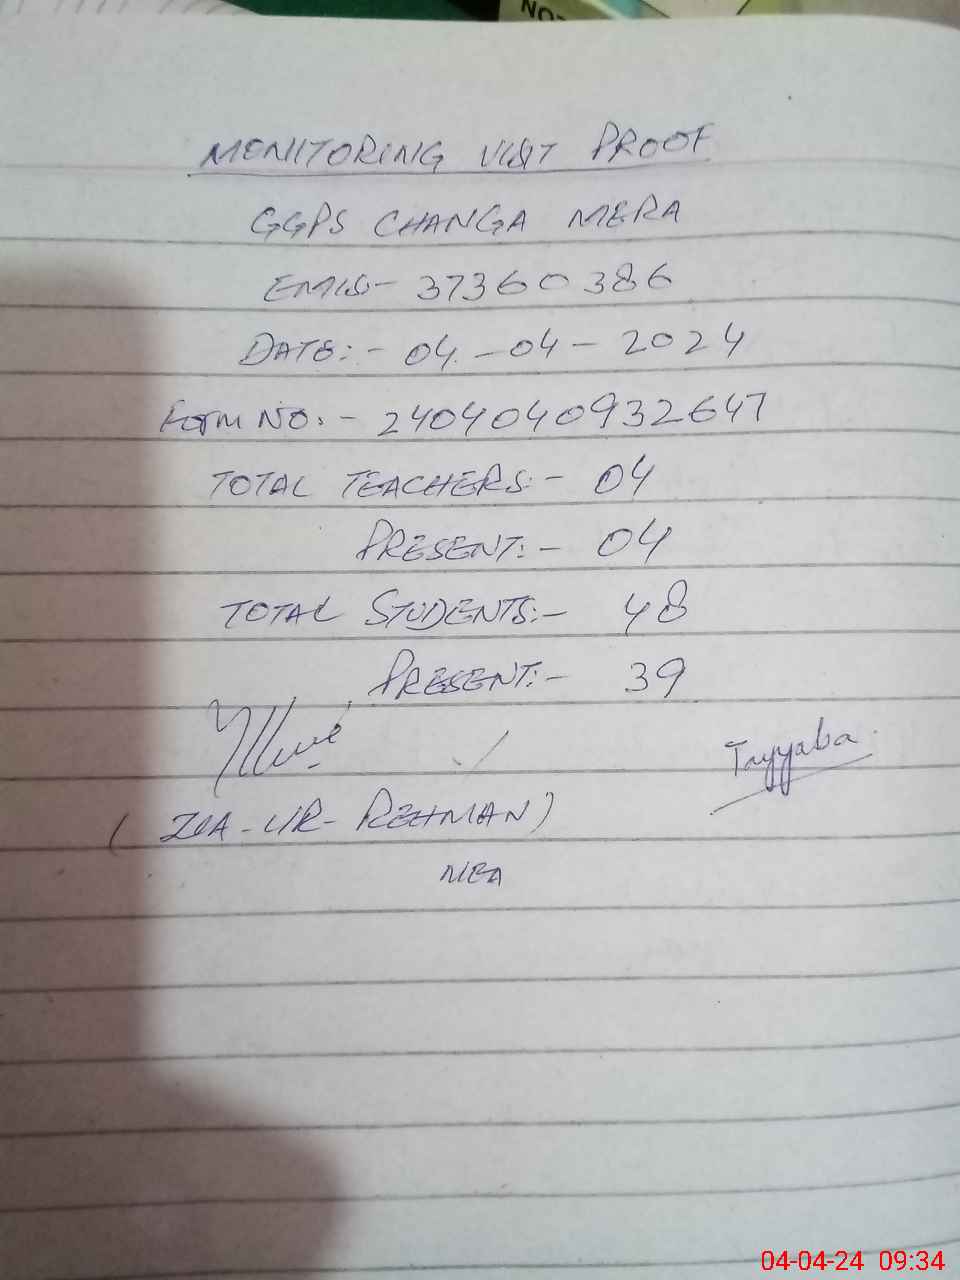 NOT
MONITORING VISIT PROOF
GGPS CHANGA MERA
EMIS- 37360386
DATE:- 04-04-2024
Form NO:- 2404040932647
TOTAL TEACHERS:- 04
PRESENT:- 04
TOTAL STUDENTS:- 48
PRESENT:- 39
Tayyaba
(ZIA-UR-REHMAN)
MEA
04-04-24 09:34